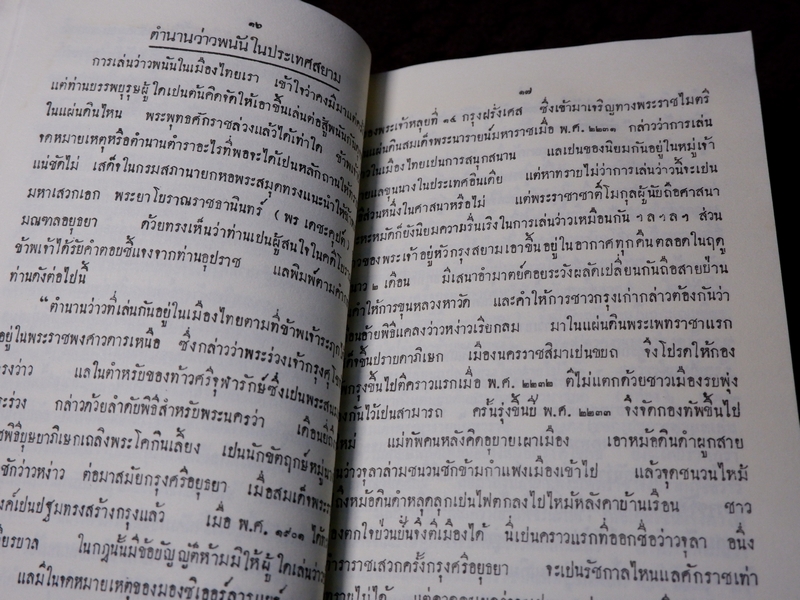 ๑๖
ตำนานว่าวพนันในประเทศสยาม
การเล่นว่าวพนันในเมืองไทยเรา เข้าใจว่าคงมีมาแต่
แต่ท่านบรรพบุรุษผู้ใดเป็นต้นคิดจัดให้เอาขึ้นเล่นต่อสู้พนันกัน
ในแผ่นดินไหน พระพุทธศักราชล่วงแล้วได้เท่าใด
จดหมายเหตุหรือตำนานตำราอะไรที่พอจะได้เป็นหลักฐาน
แน่ชัดไม่ เสด็จในกรมสภานายกหอพระสมุดทรงแนะนำให้
มหาเสวกเอก พระยาโบราณราชธานินทร์ (พร เดชะคุปต์)
มณฑลอยุธยา ด้วยทรงเห็นว่าท่านเป็นผู้สนใจในคดี
ข้าพเจ้าได้รับคำตอบชี้แจงจากท่านอุปราช แลพิมพ์ตาม
ท่านดังต่อไปนี้
“ตำนานว่าวที่เล่นกันอยู่ในเมืองไทยตามที่ข้าพเจ้า
อยู่ในพระราชพงศาวดารเหนือ ซึ่งกล่าวว่าพระร่วงเจ้ากรุง
ทรงว่าว แลในตำหรับของท้าวศรีจุฬาลักษณ์ซึ่งเป็นพระสนม
กล่าวด้วยลำดับพิธีสำหรับพระนครว่า
พิธีบุษยาภิเศกเถลิงพระโคกินเลี้ยง เป็นนักขัตฤกษ์
ชักว่าวหง่าว ต่อมาสมัยกรุงศรีอยุธยา เมื่อสมเด็จพระ
เป็นปฐมทรงสร้างกรุงแล้ว เมื่อ พ.ศ. ๑๙๐๑ ได้
ในกฎนั้นมีข้อบัญญัติห้ามมิให้ผู้ใดเล่นว่าว
แลมีในจดหมายเหตุของมองซิเออร์
๑๗
ของพระเจ้าหลุยที่ ๑๔ กรุงฝรั่งเศส ซึ่งเข้ามาเจริญทางพระราชไมตรี
แผ่นดินสมเด็จพระนารายน์มหาราชเมื่อ พ.ศ. ๒๒๓๑ กล่าวว่าการเล่น
ในเมืองไทยเป็นการสนุกสนาน แลเป็นของนิยมกันอยู่ในหมู่เจ้า
แลขุนนางในประเทศอินเดีย แต่หาทราบไม่ว่าการเล่นว่าวนี้จะเป็น
ส่วนหนึ่งในศาสนาหรือไม่ แต่พระราชาชาติโมกุลผู้นับถือศาสนา
มะหะหมัดก็ยังนิยมความรื่นเริงในการเล่นว่าวเหมือนกัน ฯลฯลฯ ส่วน
ว่าวของพระเจ้าอยู่หัวกรุงสยามเอาขึ้นอยู่ในอากาศทุกคืนตลอดในฤดู
หนาว ๒ เดือน มีเสนาอำมาตย์คอยระวังผลัดเปลี่ยนกันถือสายป่าน
คำให้การขุนหลวงหาวัด และคำให้การชาวกรุงเก่ากล่าวต้องกันว่า
เดือนอ้ายพิธีแคลงว่าวหง่าวเรียกลม มาในแผ่นดินพระเพทราชาแรก
ขึ้นปราบดาภิเษก เมืองนครราชสีมาเป็นขบถ จึงโปรดให้กอง
กรุงขึ้นไปตีคราวแรกเมื่อ พ.ศ. ๒๒๓๒ ตีไม่แตกด้วยชาวเมืองรบพุ่ง
กันไว้เป็นสามารถ ครั้นรุ่งขึ้นปี พ.ศ. ๒๒๓๓ จึงจัดกองทัพขึ้นไป
ใหม่ แม่ทัพคนหลังคิดอุบายเผาเมือง เอาหม้อดินดำผูกสาย
ว่าวจุลาล่ามชนวนชักข้ามกำแพงเมืองเข้าไป แล้วจุดชนวนไหม้
ถึงหม้อดินดำหลุดลุกเป็นไฟตกลงไปไหม้หลังคาบ้านเรือน ชาว
ตกใจป่วนปั่นจึงตีเมืองได้ นี่เป็นคราวแรกที่ออกชื่อว่าวจุลา อนึ่ง
ตำราราชาเสวกครั้งกรุงศรีอยุธยา จะเป็นรัชกาลไหนแลศักราชเท่า